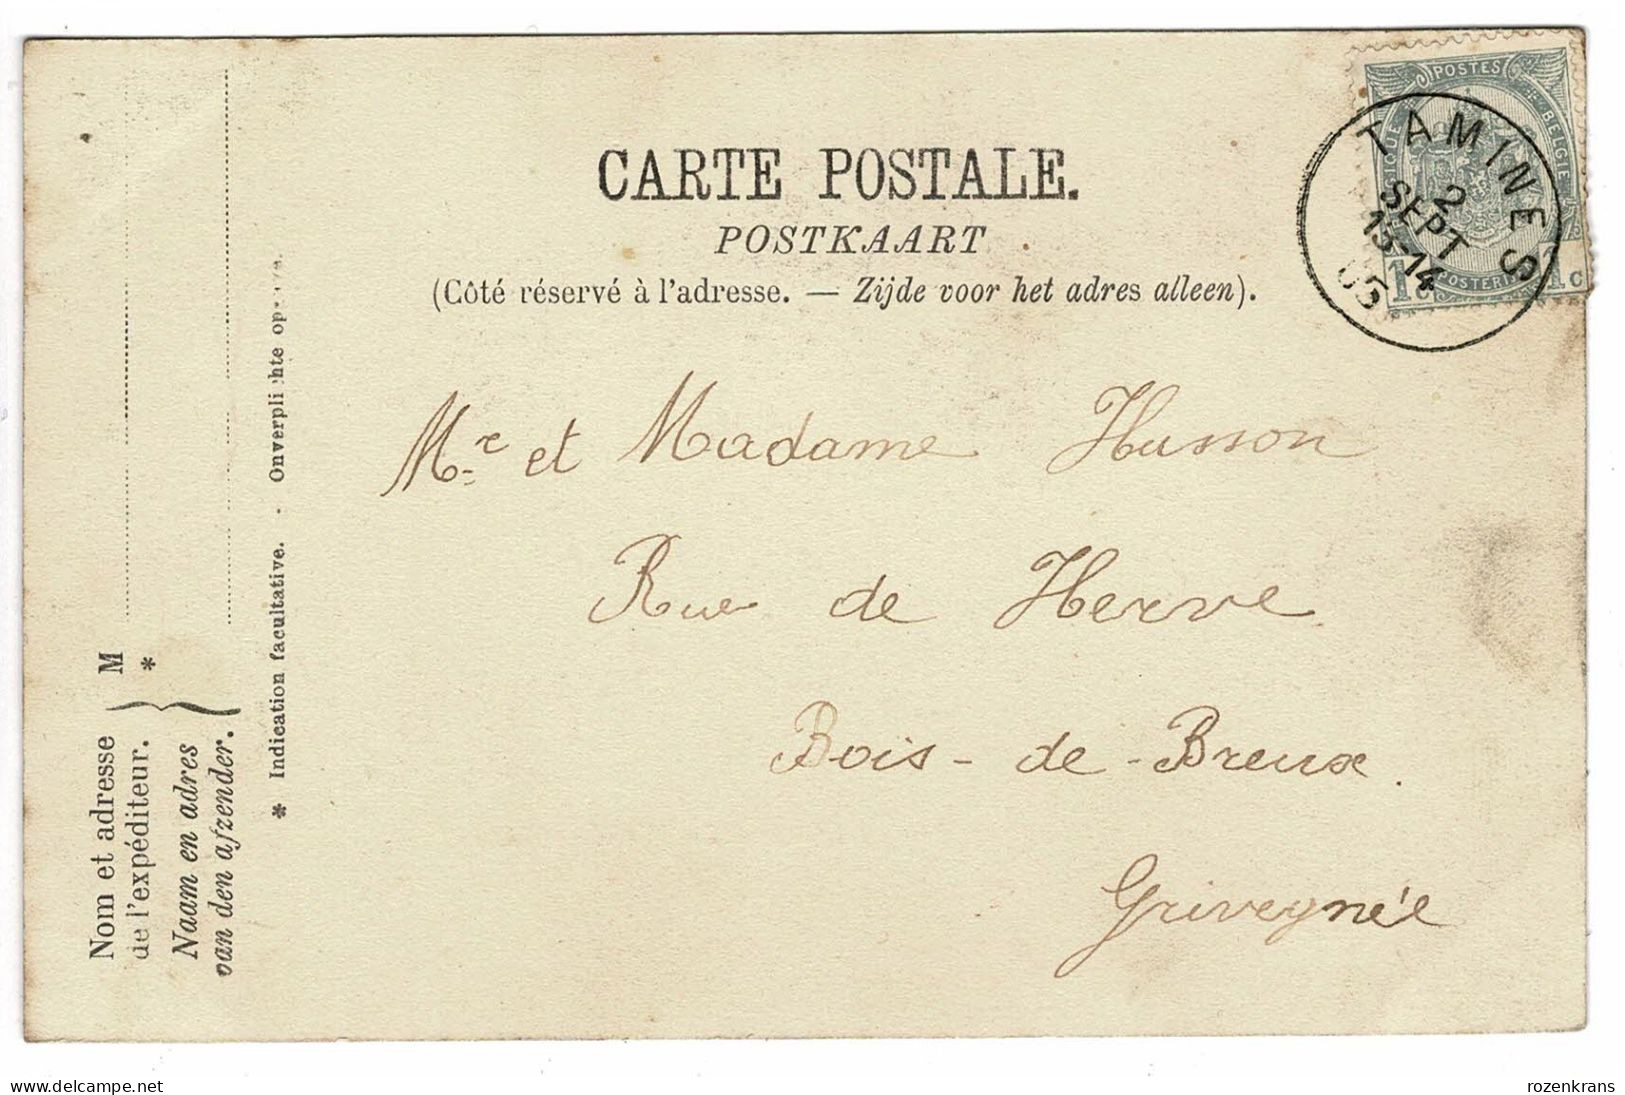 CARTE POSTALE.
POSTKAART
(Côté réservé à l'adresse. — Zijde voor het adres alleen).
POSTES
BELGIE
1c
1c
TAMINES
2
SEPT
13-14
05
Mr et Madame Husson
Rue de Herve
Bois-de-Breux.
Grivegnée
Nom et adresse
de l'expéditeur.
Naam en adres
van den afzender.
M
*
* Indication facultative. -
delcampe.net
rozenkrans